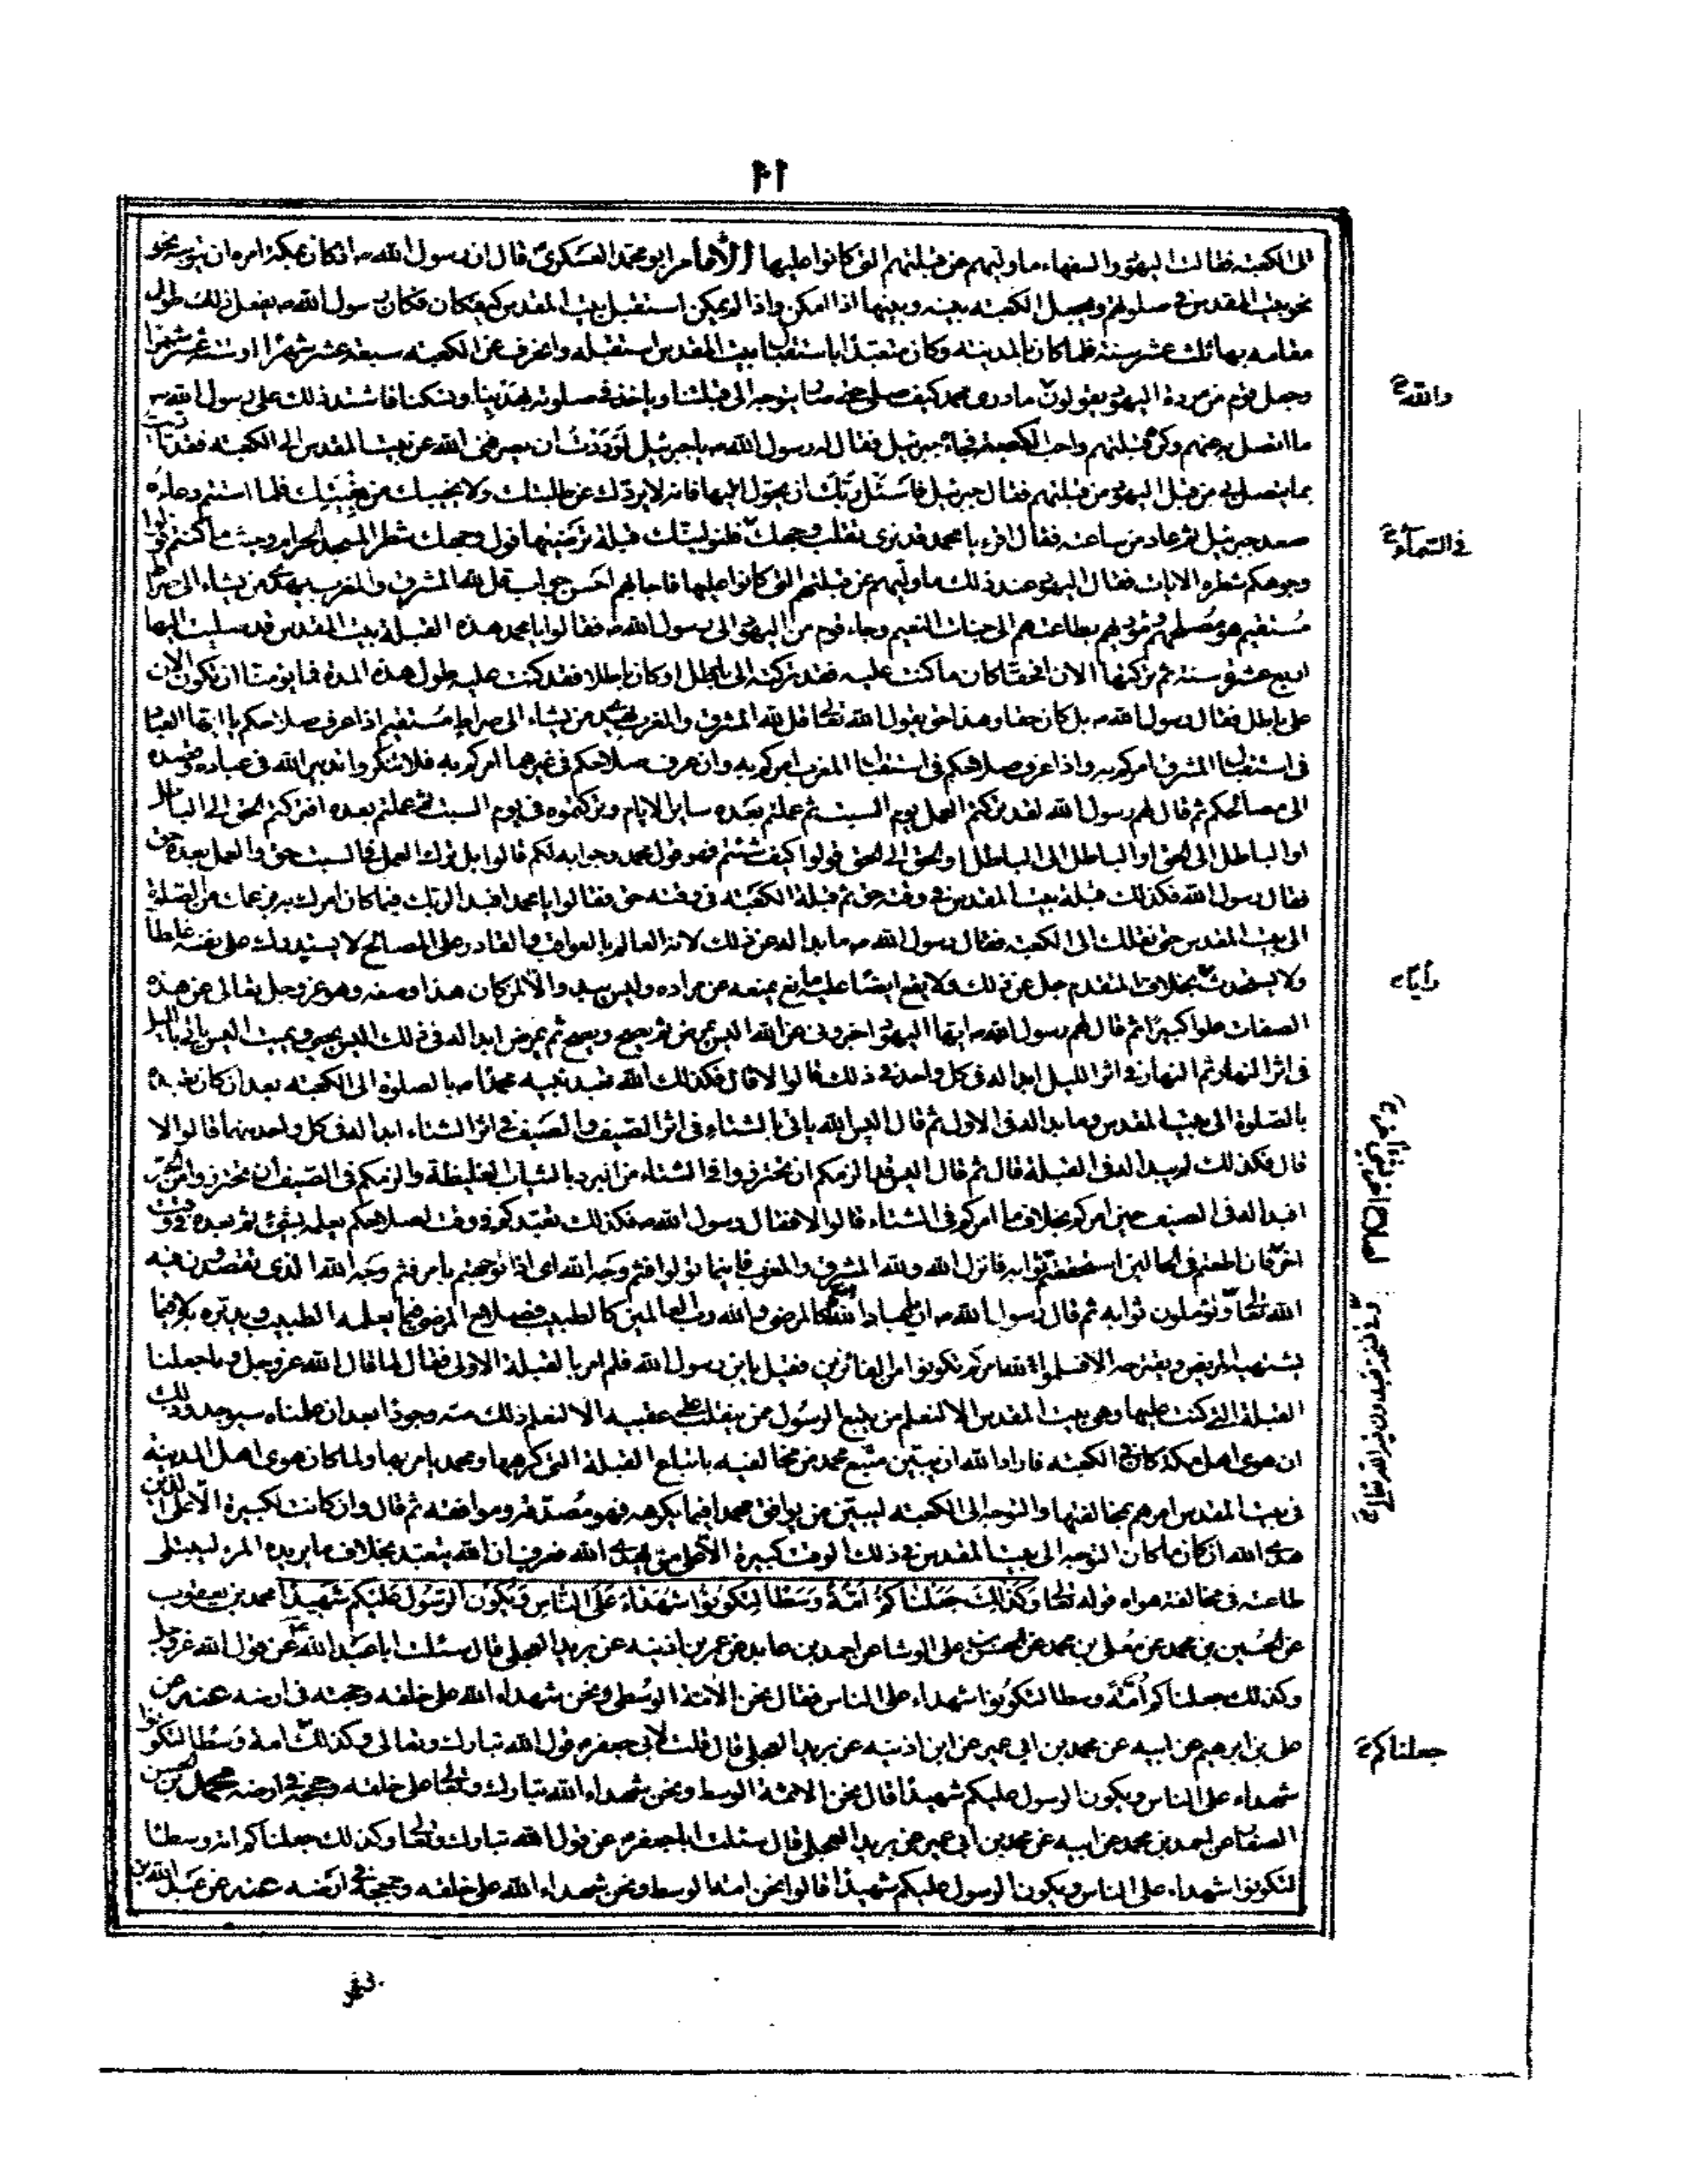 الى الكعبة فقالت اليهود والسفهاء ما وليهم عن قبلتهم التى كانوا عليها الامام ابو محمد العسكرى قال ان رسول الله ص لما كان بمكة امره ان يتوجه نحو
نحو بيت المقدس فى صلوته ويجعل الكعبة بينه وبينها اذا امكن واذا لم يمكن استقبل بيت المقدس كيف كان فكان رسول الله ص يفعل ذلك طول
مقامه بها ثلث عشر سنة فلما كان بالمدينة وكان متعبدا باستقبال بيت المقدس استقبله وانحرف عن الكعبة سبعة عشر شهرا او ستة عشر شهرا
وجعل قوم من مردة اليهود يقولون ما درى محمد كيف صلى حتى صار يتوجه الى قبلتنا وياخذ فى صلوته بهدينا ونسكنا فاشتد ذلك على رسول الله ص
ما اتصل به عنهم وكره قبلتهم واحب الكعبة فجائه جبرئيل فقال له رسول الله ص يا جبرئيل لوددت ان صرفنى الله عن بيت المقدس الى الكعبة فقد تاذيت
بما يتصل بى من قبل اليهود من قبلتهم فقال جبرئيل فاسئل ربك ان يحولك اليها فانه لا يردك عن طلبتك ولا يخيبك من بغيتك فلما استتم دعاءه
صعد جبرئيل ثم عاد من ساعته فقال اقرء يا محمد قد نرى تقلب وجهك فلنولينك قبلة ترضيها فول وجهك شطر المسجد الحرام وحيث ما كنتم فولوا
وجوهكم شطره الايات فقال اليهود عند ذلك ما وليهم عن قبلتهم التى كانوا عليها فاجابهم احسن جواب قل لله المشرق والمغرب يهدى من يشاء الى صراط
مستقيم هو مصلحهم ومؤديهم بطاعتهم الى جنات النعيم وجاء قوم من اليهود الى رسول الله ص فقالوا يا محمد هذه القبلة بيت المقدس قد صليت اليها
اربع عشرة سنة ثم تركتها الان افحقا كان ما كنت عليه فقد تركته الى باطل او كان باطلا فقد كنت عليه طول هذه المدة فما يؤمننا ان تكون الان
على باطل فقال رسول الله ص بل كان حقا وهذا حق يقول الله تعالى قل لله المشرق والمغرب يهدى من يشاء الى صراط مستقيم اذا عرف صلاحكم يا ايها العباد
فى استقبال المشرق امركم به واذا عرف صلاحكم فى استقبال المغرب امركم به وان عرف صلاحكم فى غيرهما امركم به فلا تنكروا تدبير الله فى عباده وقصده
الى مصالحكم ثم قال لهم رسول الله لقد تركتم العمل يوم السبت ثم عملتم بعده ساير الايام وتركتموه فى يوم السبت ثم عملتم بعده افتركتم الحق الى الباطل
او الباطل الى الحق او الباطل الى الباطل او الحق الى الحق قولوا كيف شئتم فهو قول محمد وجوابه لكم قالوا بل ترك العمل فى السبت حق والعمل بعده حق
فقال رسول الله فكذلك قبلة بيت المقدس فى وقته حق ثم قبلة الكعبة فى وقته حق فقالوا يا محمد افبدا لربك فيما كان امرك به بزعمك من الصلوة
الى بيت المقدس حتى نقلك الى الكعبة فقال رسول الله ص ما بدا له عن ذلك لانه العالم بالعواقب والقادر على المصالح لا يستدرك على نفسه غلطا
ولا يستحدث بخلاف المتقدم جل عن ذلك ولا يقع ايضا عليه مانع يمنعه عن مراده وليس يبدو الا لمن كان هذا وصفه وهو عز وجل يتعالى عن هذه
الصفات علوا كبيرا ثم قال لهم رسول الله ص ايها اليهود اخبرونى عن الله اليس يمرض ثم يصح ويصح ثم يمرض ابدا له فى ذلك اليس يحيى ويميت اليس ياتى بالليل
فى اثر النهار ثم النهار فى اثر الليل ابدا له فى كل واحد فى ذلك قالوا لا قال فكذلك الله تعبد نبيه محمدا ص بالصلوة الى الكعبة بعد ان كان تعبده
بالصلوة الى بيت المقدس وما بدا له فى الاول ثم قال اليس الله ياتى بالشتاء فى اثر الصيف والصيف فى اثر الشتاء ابدا له فى كل واحد منهما قالوا لا
قال فكذلك لم يبدا له فى القبلة قال ثم قال اليس قد الزمكم ان تحترزوا فى الشتاء من البرد بالثياب الغليظة والزمكم فى الصيف ان تحترزوا من الحر
افبدا له فى الصيف حين امركم بخلاف ما امركم فى الشتاء قالوا لا فقال رسول الله ص فكذلك تعبدكم فى وقت لصلاحكم يعلمه بشئ ثم بعده فى وقت
اخر فان اطعتم فى الحالين استحققتم ثوابه فانزل الله ولله المشرق والمغرب فاينما تولوا فثم وجه الله اى اذا توجهتم بامره فثم وجه الله الذى تقصدون منه
الله تعالى وتؤملون ثوابه ثم قال رسول الله ص يا عباد الله انتم كالمرضى والله رب العالمين كالطبيب فصلاح المرضى فيما يعلمه الطبيب ويدبره به لا فيما
يشتهيه المريض ويقترحه الا فسلموا لله امره تكونوا من الفائزين فقيل يابن رسول الله فلم امر بالقبلة الاولى فقال لما قال الله عز وجل وما جعلنا
القبلة التى كنت عليها وهى بيت المقدس الا لنعلم من يتبع الرسول ممن ينقلب على عقبيه الا لنعلم ذلك منه وجودا بعد ان علمناه سيوجد وذلك
ان هوى اهل مكة كان فى الكعبة فاراد الله ان يبين متبع محمد من مخالفيه باتباع القبلة التى كرهها ومحمد يامر بها ولما كان هوى اهل المدينة
فى بيت المقدس امرهم بمخالفتها والتوجه الى الكعبة ليبين من يوافق محمدا فيما يكرهه فهو مصدقه وموافقه ثم قال وان كانت لكبيرة الا على الذين
هدى الله ان كان ما كان التوجه الى بيت المقدس فى ذلك الوقت كبيرة الا على من يهدى الله فعرف ان الله يتعبد بخلاف ما يريده المرء ليبتلى
طاعته فى مخالفة هواه قوله تعالى وكذلك جعلناكم امة وسطا لتكونوا شهداء على الناس ويكون الرسول عليكم شهيدا محمد بن يعقوب
عن الحسين بن محمد عن معلى بن محمد عن الحسن بن على الوشا عن احمد بن عايد عن عمر بن اذينة عن بريد العجلى قال سئلت ابا عبد الله ع عن قول الله عز وجل
وكذلك جعلناكم امة وسطا لتكونوا شهداء على الناس فقال نحن الامة الوسطى ونحن شهداء الله على خلقه وحجته فى ارضه عنه عن
على بن ابرهيم عن ابيه عن محمد بن ابى عمير عن ابن اذينة عن بريد العجلى قال قلت لابى جعفر ع قول الله تبارك وتعالى وكذلك امة وسطا لتكونوا
شهداء على الناس ويكون الرسول عليكم شهيدا قال نحن الامة الوسط ونحن شهداء الله تبارك وتعالى على خلقه وحججه فى ارضه محمد بن الحسن
الصفار عن احمد بن محمد عن ابيه عن محمد بن ابى عمير عن بريد العجلى قال سئلت ابا جعفر ع عن قول الله تبارك وتعالى وكذلك جعلناكم امة وسطا
لتكونوا شهداء على الناس ويكون الرسول عليكم شهيدا قالوا نحن امة الوسط ونحن شهداء الله على خلقه وحججه فى ارضه عنه عن عبد الله بن
والله
فى السماء
جعلناكم